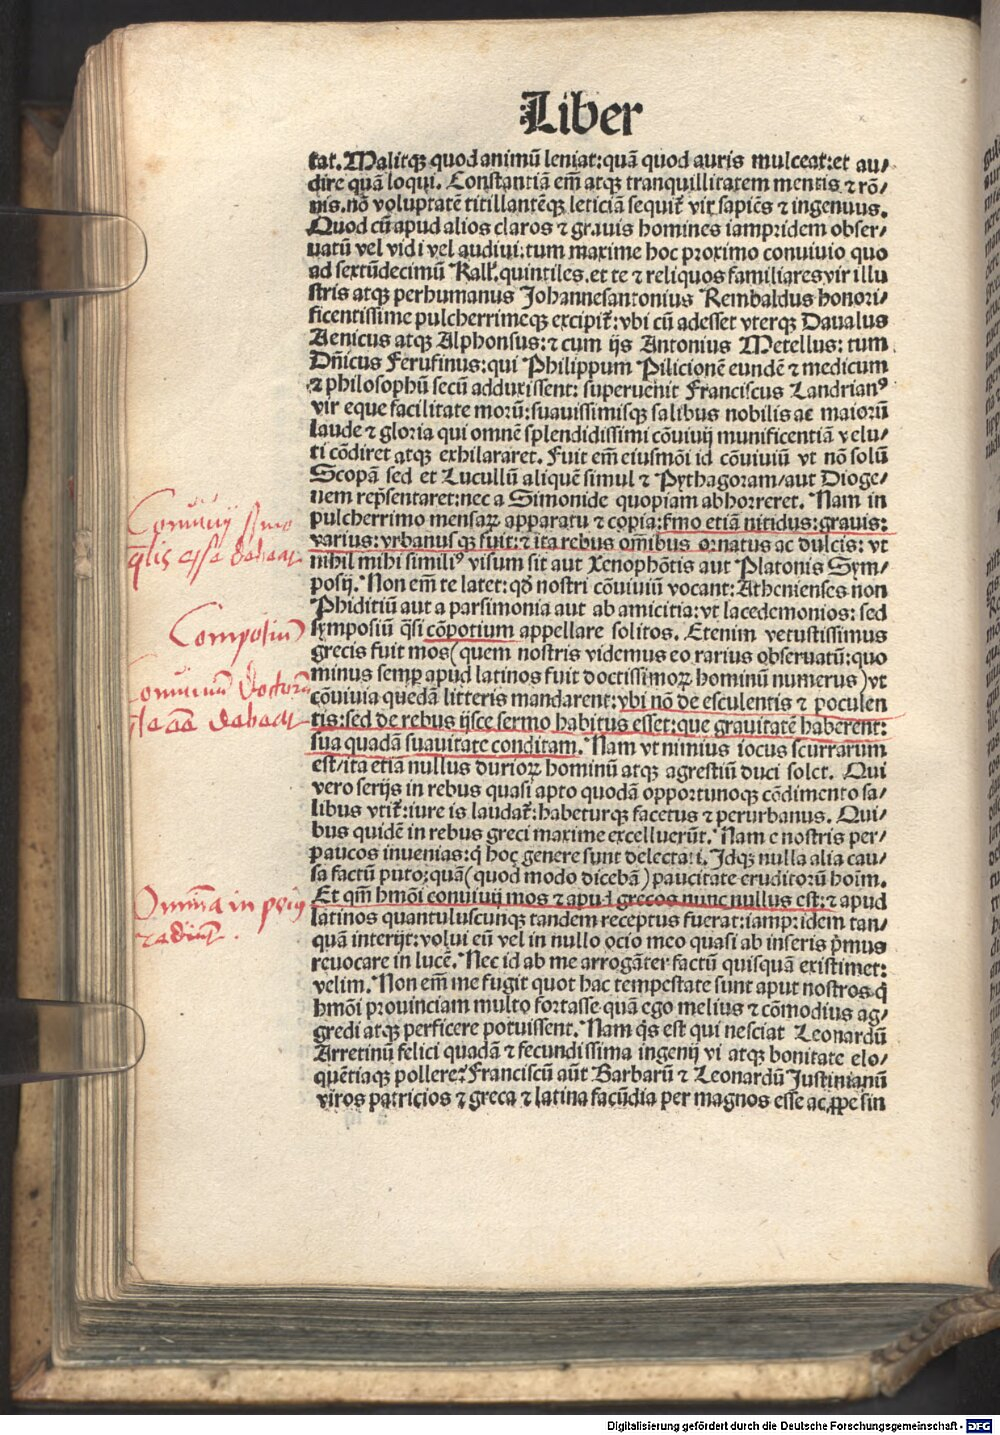 Liber
tat. Malitqꝫ quod animū leniat: quā quod auris mulceat: et au⸗
dire quā loqui. Constantiā em̄ atqꝫ tranquillitatem mentis ⁊ rō⸗
nis. nō voluptatē titillantēqꝫ leticiā sequit᷑ vir sapiēs ⁊ ingenuus.
Quod cū apud alios claros ⁊ grauis homines iampridem obser⸗
uatū vel vidi vel audiui: tum maxime hoc proximo conuiuio quo
ad sextūdecimū Kalꝭ. quintiles. et te ⁊ reliquos familiares vir illu
stris atqꝫ perhumanus Johannesantonius Rembaldus honori⸗
ficentissime pulcherrimeqꝫ excipit᷑: vbi cū adesset vterqꝫ Daualus
Aenicus atqꝫ Alphonsus: ⁊ cum ijs Antonius Metellus: tum
Dn̄icus Ferufinus: qui Philippum Pilicionē eundē ⁊ medicum
⁊ philosophū secū adduxissent: superuenit Franciscus Landrianꝰ
vir eque facilitate morū: suauissimisqꝫ salibus nobilis ac maiorū
laude ⁊ gloria qui omnē splendidissimi cōuiuij munificentiā velu⸗
ti cōdiret atqꝫ exhilararet. Fuit em̄ eiusmōi id cōuiuiū vt nō solū
Scopā sed et Lucullū aliquē simul ⁊ Pythagoram/aut Dioge⸗
nem rep̄sentaret: nec a Simonide quopiam abhorreret. Nam in
pulcherrimo mensaꝝ apparatu ⁊ copia: ẜmo etiā nitidus: grauis:
varius: vrbanusqꝫ fuit: ⁊ ita rebus om̄ibus ornatus ac dulcis: vt
nihil mihi similiꝰ visum sit aut Xenophōtis aut Platonis Sym⸗
posij. Non em̄ te latet: qđ nostri cōuiuiū vocant: Athenienses non
Phiditiū aut a parsimonia aut ab amicitia: vt lacedemonios: sed
symposiū q̄si cōpotium appellare solitos. Etenim vetustissimus
grecis fuit mos (quem nostris videmus eo rarius obseruatū: quo
minus semꝑ apud latinos fuit doctissimoꝝ hominū numerus) vt
cōuiuia quedā litteris mandarent: vbi nō de esculentis ⁊ poculen
tis: sed de rebus ijsce sermo habitus esset: que grauitatē haberent:
sua quadā suauitate conditam. Nam vt nimius iocus scurrarum
est/ita etiā nullus durioꝝ hominū atqꝫ agrestiū duci solet. Qui
vero serijs in rebus quasi apto quodā opportunoqꝫ cōdimento sa⸗
libus vtit᷑: iure is laudat᷑: habeturqꝫ facetus ⁊ perurbanus. Qui⸗
bus quidē in rebus greci maxime excelluerūt. Nam e nostris per⸗
paucos inuenias: q̇ hoc genere sunt delectati. Idqꝫ nulla alia cau⸗
sa factū puto: quā (quod modo dicebā) paucitate eruditorū hoīm.
Et qm̄ hmōi conuiuij mos ⁊ apud grecos nunc nullus est: ⁊ apud
latinos quantuluscunqꝫ tandem receptus fuerat: iampridem tan⸗
quā interijt: volui eū vel in nullo ocio meo quasi ab inferis p̄mus
reuocare in lucē. Nec id ab me arrogāter factū quisquā existimet:
velim. Non em̄ me fugit quot hac tempestate sunt aput nostros q̇
hmōi prouinciam multo fortasse quā ego melius ⁊ cōmodius ag⸗
gredi atqꝫ perficere potuissent. Nam q̇s est qui nesciat Leonardū
Arretinū felici quadā ⁊ fecundissima ingenij vi atqꝫ bonitate elo⸗
quētiaqꝫ pollere? Franciscū aūt Barbarū ⁊ Leonardū Justinianū
viros patricios ⁊ greca ⁊ latina facūdia per magnos esse ac ꝓpe sin
Conuiuij sermo
q̄lis esse debeat
Compotiū
Conuiuiū doctorū
debeat
Digitalisierung gefördert durch die Deutsche Forschungsgemeinschaft - DFG